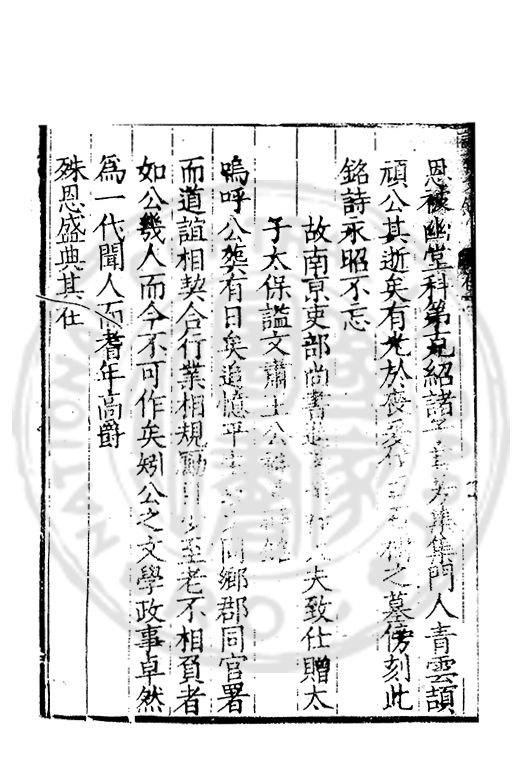 恩被幽堂科第克紹諸集門人青雲頡
頏公其逝矣有光於喪之墓傍刻此
銘詩永昭不忘
故南京吏部尚書進夫致仕贈太
子太保諡文肅王公
嗚呼公葬有日矣追憶平生同鄉郡同官署
而道誼相契合行業相規勵至老不相負者
如公幾人而今不可作矣矧公之文學政事卓然
為一代聞人而耆年高爵
殊恩盛典其在